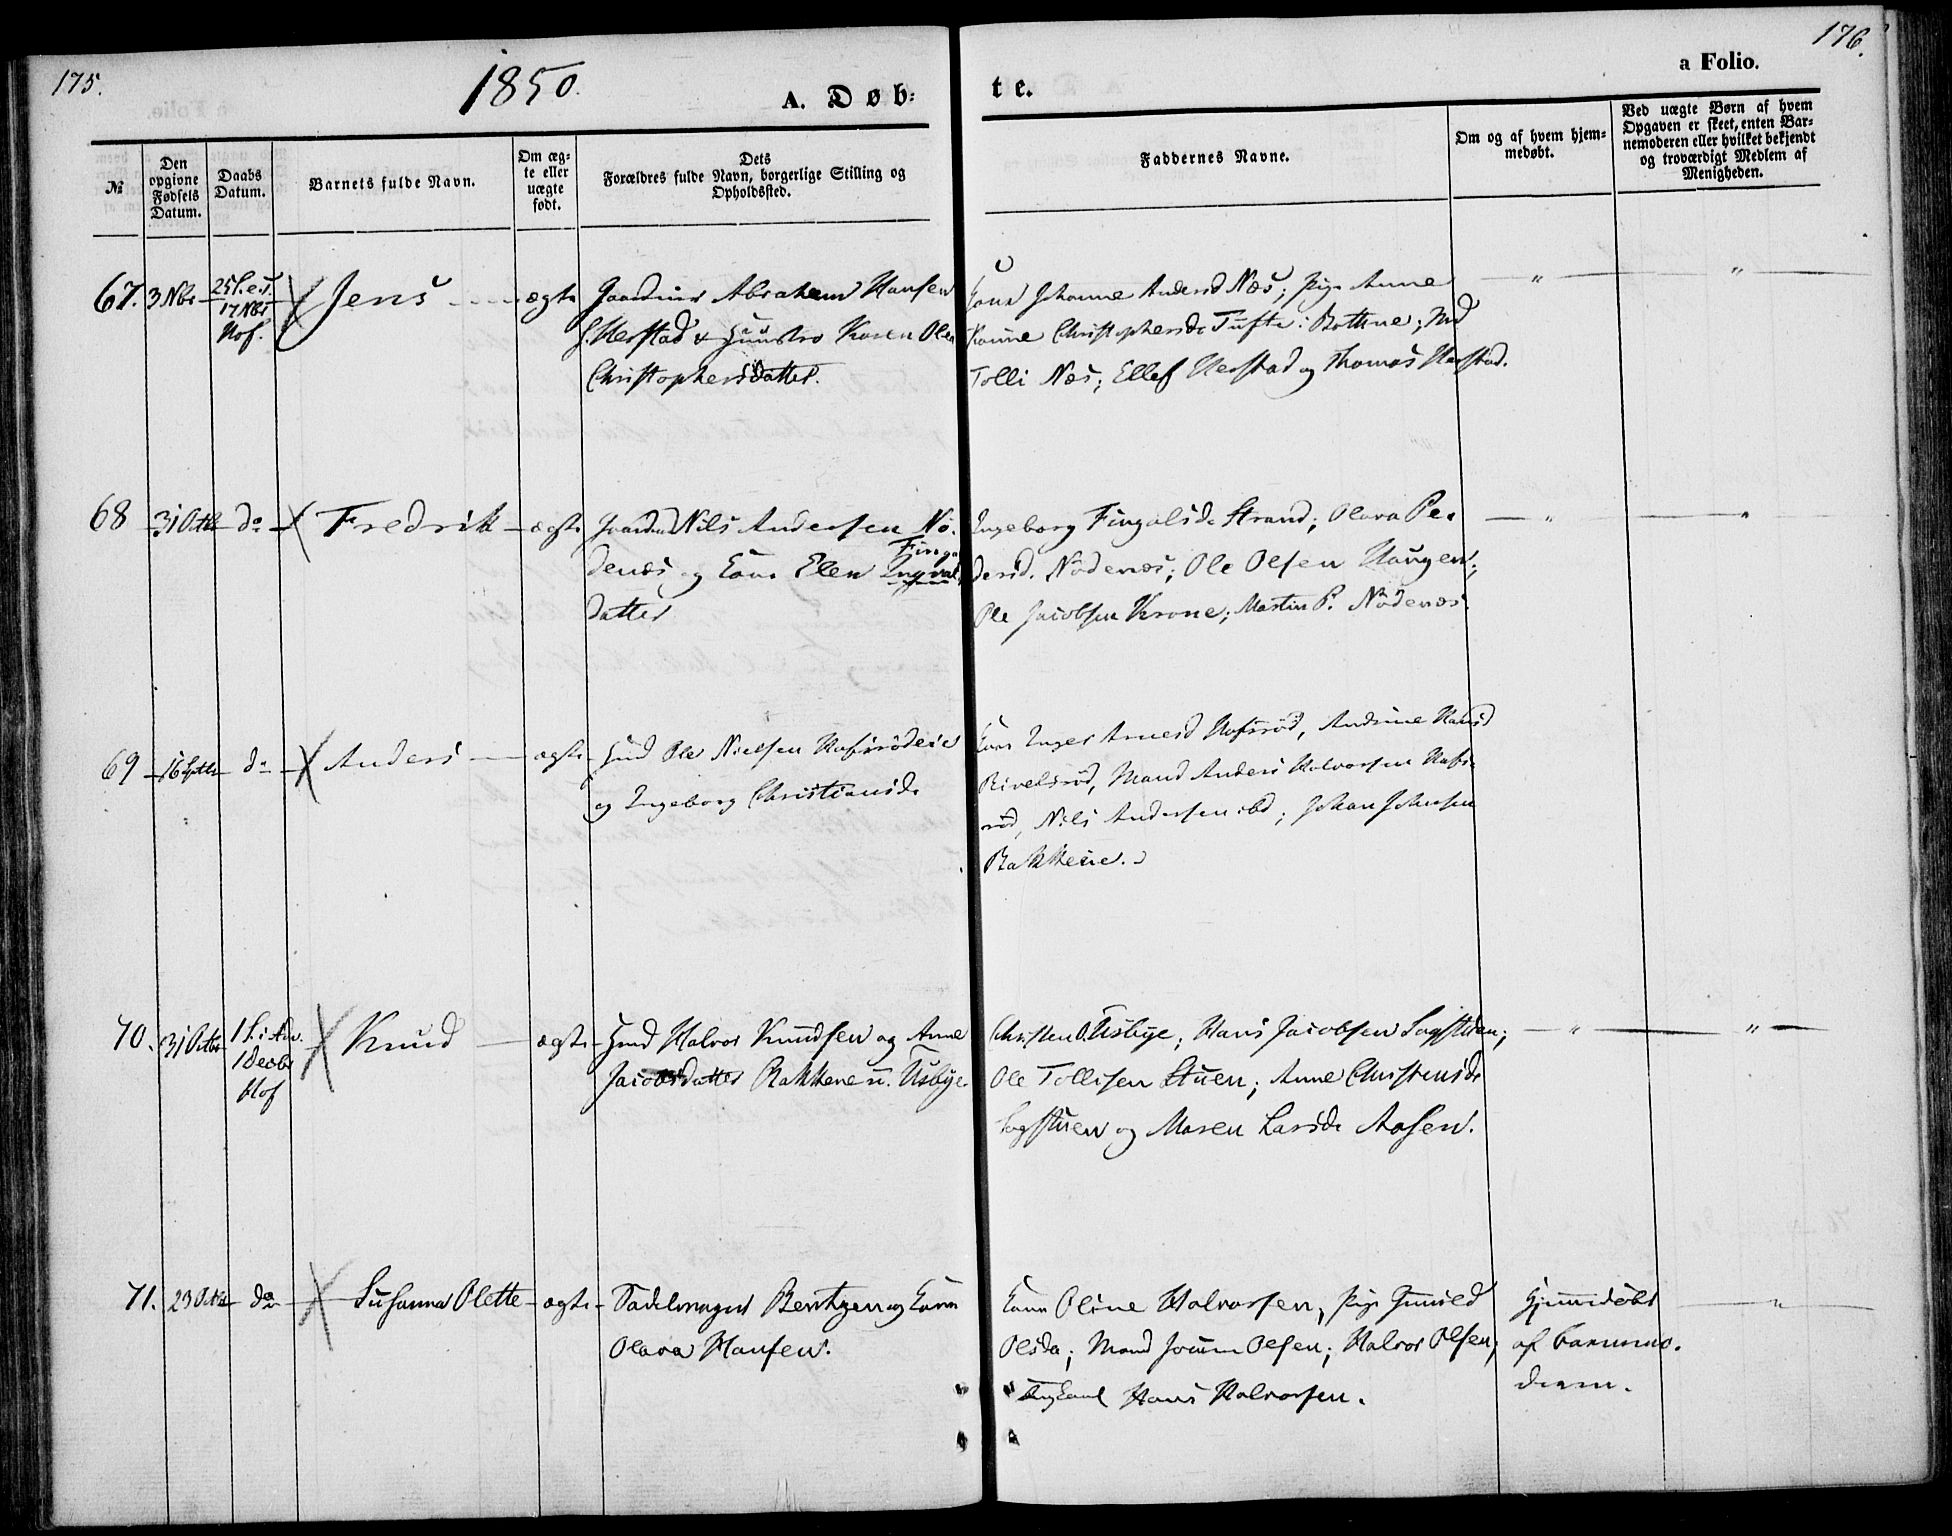 175.
1850.
A. Døb:
te.
a Folio.
176.
№
Den opgivne Fødsels Datum.
Daabs Datum.
Barnets fulde Navn.
Om ægte eller uægte født.
Dets Forældres fulde Navn, borgerlige Stilling og Opholdssted.
Faddernes Navne.
Om og af hvem hjemmedøbt.
Ved uægte Børn af hvem Opgaven er skeet, enten Barnemoderen eller hvilket bekjendt og troværdigt Medlem af Menigheden.
67. 3 Nbr 25 S. e. T. 17 Nbr Hof. Jens ægte
Gaardmd Abraham Hansen
Herstad & Huustro Karen Olea
Christophersdatter.
Kone Johanne Andersd Næs; Pige Anne
Karine Christophersd Tufte i Bothne; Md
Tolli Næs; Ellef Herstad og Thomas Herstad.
68 31 Octb do Fredrik ægte
Gaardmd Nils Andersen Nö-
Finga
denæs og Kone Elen Ingval
datter
Ingeborg Fingalsd Strand; Olava Pe-
dersd. Nödenæs; Ole Olsen Haugen;
Ole Jacobsen Krone; Martin P. Nödenæs.
69 16 Septbr do Anders ægte
Hmd Ole Nielsen Hafsrödeie
og Ingeborg Christiansd
Kone Inger Arnesd Hafsröd, Andrine Hansd
Rivelsröd, Mand Anders Halvorsen Hafs-
röd, Nils Andersen ibd; Johan Johnsen
Bakkeeie.
70. 31 Octbr 1 S. i Adv. 1 Decbr Hof Knud ægte
Hmd Halvor Knudsen og Anne
Jacobsdatter Bakkene u. Eusbye
Christen Eusbye; Hans Jacobsen Sagstuen;
Ole Tollisen Stuen; Anne Christensd
Sagstuen og Maren Larsd Aasen.
71. 23 Octb do Susanna Olette ægte
Sadelmager Bentzen og Kone
Olava Hansen.
Kone Oline Halvorsen, Pige Gunild
Olsda; Mand Joun Olsen; Halvor Olsen;
Ungkarl Hans Halvorsen.
Hjemmedöbt
af Barnemo-
deren.